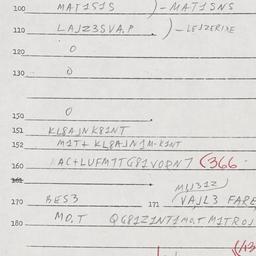 100 MAT1S1S ) - MAT1SNS
110 LAJZ3SVA.P ) - LEJZERINE
120 0
130 0
150 0
151 KL8AJNK81NT
152 M1T+ KL8AJN1M-K1NT
160 AC+LUFM7TG81VODN7 (366
161
MU31Z
170 BES3 171 VAJL3 FARE
180 MO.T QG81Z1NT1MO.T M1TROJ